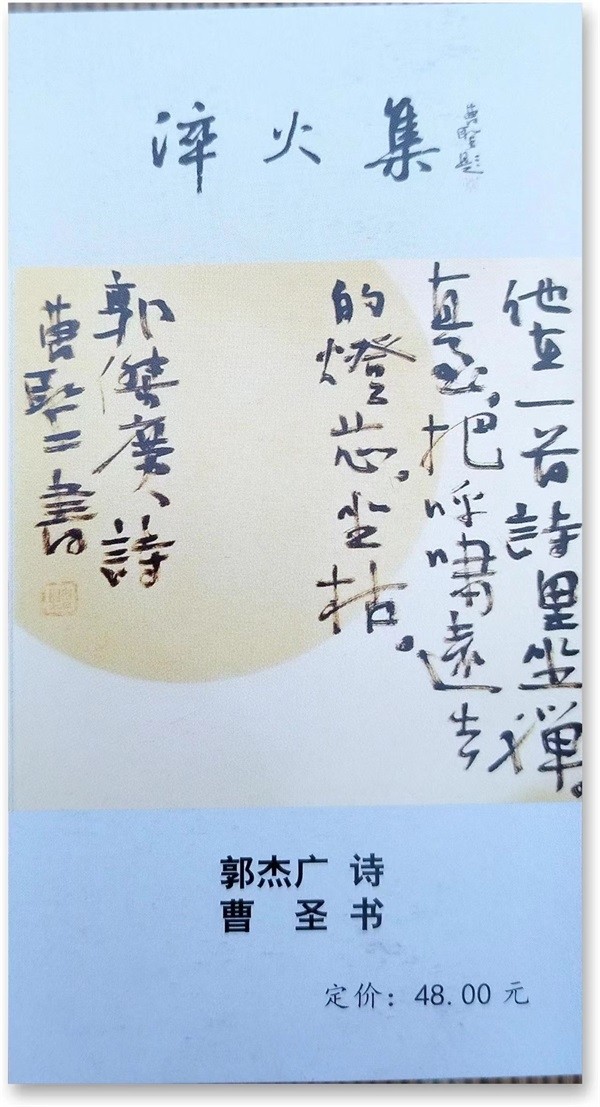 淬火集
曹聖题
他在一首詩里坐禪。
直至，把呼嘯遠去
的燈芯，坐枯。
郭傑廣詩
曹聖書
郭杰广 诗
曹 圣 书
定价：48.00 元